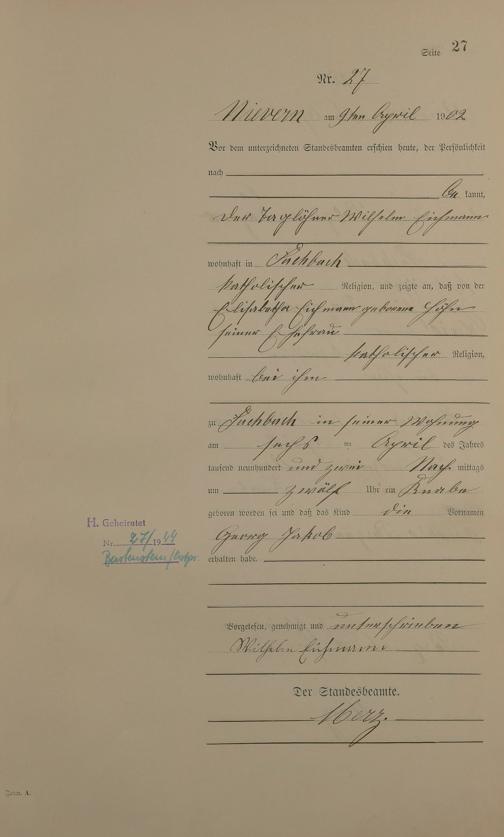 Seite 27
Nr. 27
Nievern am 9ten April 1902
Vor dem unterzeichneten Standesbeamten erschien heute, der Persönlichkeit
nach
be kannt,
der Taglöhner Wilhelm Eichmann
wohnhaft in Fachbach
katholischer Religion, und zeigte an, daß von der
Elisabetha Eichmann geborene Höhn
seiner Ehefrau
katholischer Religion,
wohnhaft bei ihm
zu Fachbach in seiner Wohnung
am sechs = April des Jahres
tausend neunhundert und zwei Nach mittags
um zwölf Uhr ein Knabe
geboren worden sei und daß das Kind die Vornamen
Georg Jakob
erhalten habe.
H. Geheiratet
Nr. 27/1944
Bartenstein/Ostpr.
Vorgelesen, genehmigt und unterschrieben
Wilhelm Eichmann
Der Standesbeamte.
Merz.
Form. A.